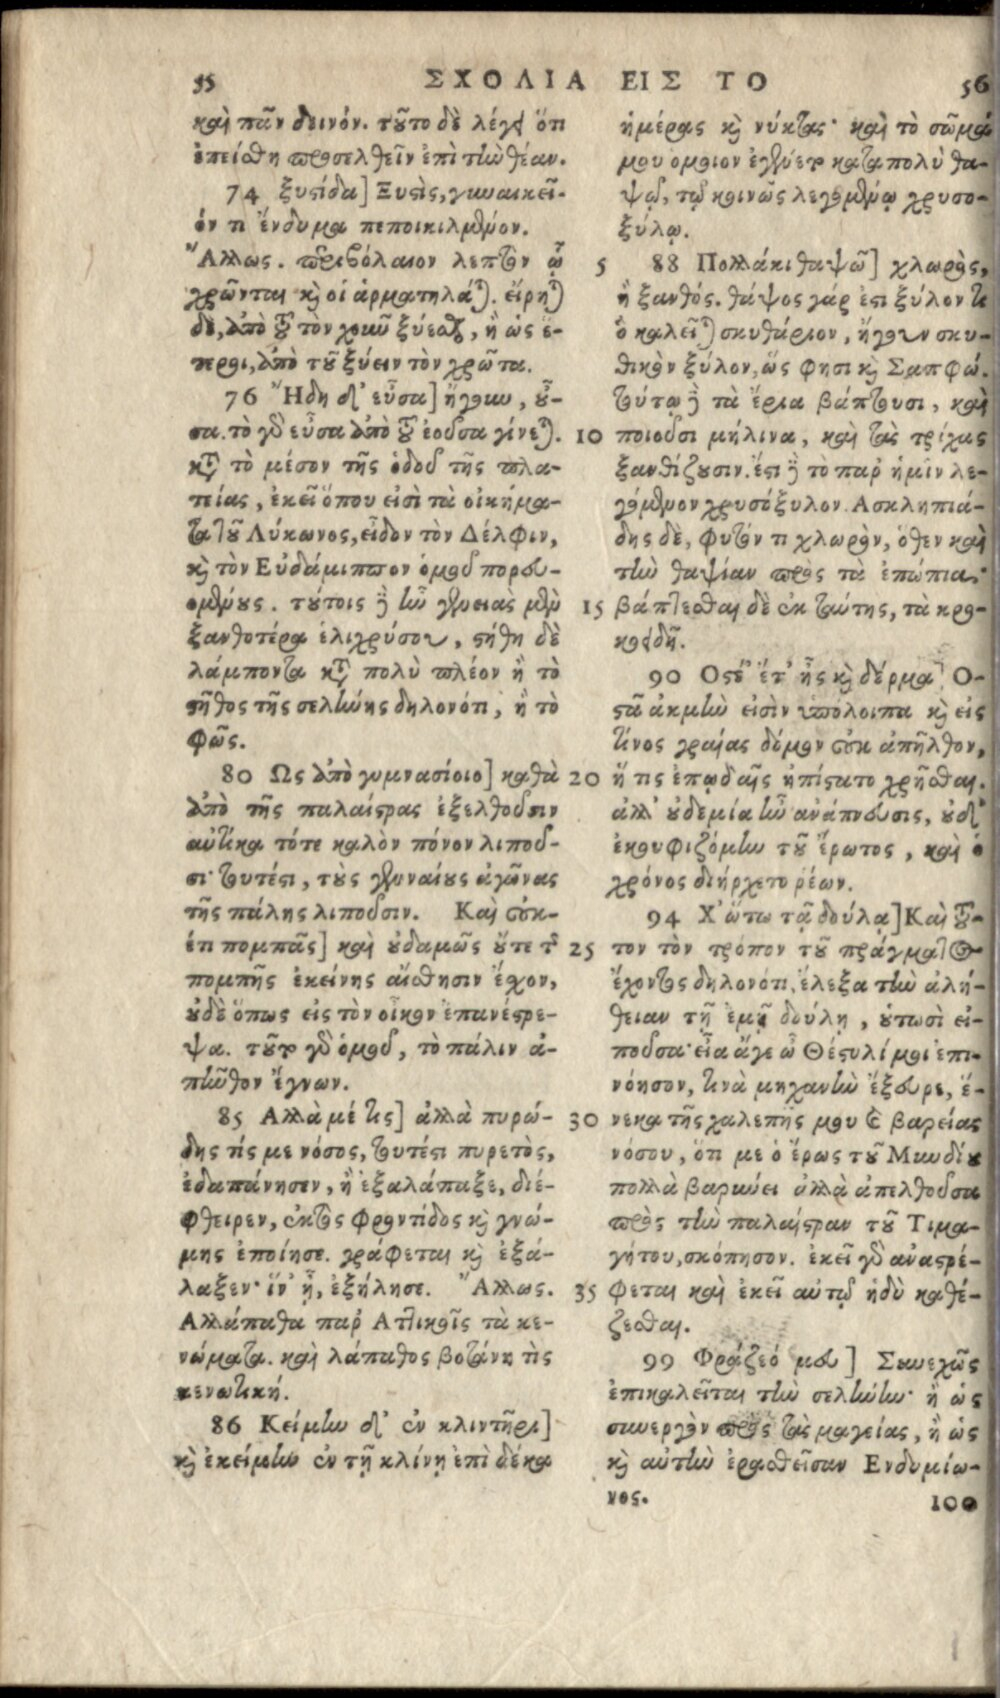 55 ΣΧΟΛΙΑ ΕΙΣ ΤΟ 56
καὶ πᾶν δεινόν. τοῦτο δὲ λέγει ὅτι
ἐπείσθη προσελθεῖν ἐπὶ τὴν θέαν.
74 ξυστίδα] Ξυστὶς, γυναικεῖ-
όν τι ἔνδυμα πεποικιλμένον.
Ἄλλως. περιβόλαιον λεπτὸν ᾧ
χρῶνται καὶ οἱ ἁρματηλάται. εἴρηται
δὲ, ἀπὸ τοῦ τὸν χοιοῦ ξύεσθαι, ἢ ὡς ἕ-
τεροι, ἀπὸ τοῦ ξύειν τὸν χρῶτα.
76 Ἤδη δ' εὖσα] ἤγουν, οὖ-
σα. τὸ γὰρ εὖσα ἀπὸ τοῦ ἐοῦσα γίνεται.
κατὰ τὸ μέσον τῆς ὁδοῦ τῆς πλα-
τείας, ἐκεῖ ὅπου εἰσὶ τὰ οἰκήμα-
τα τοῦ Λύκωνος, εἶδον τὸν Δέλφιν,
καὶ τὸν Εὐδάμιππον ὁμοῦ πορευ-
ομένους. τούτοις δὲ ἦν γενειὰς μὲν
ξανθοτέρα ἑλιχρύσου, στήθη δὲ
λάμποντα κατὰ πολὺ πλέον ἢ τὸ
στῆθος τῆς σελήνης δηλονότι, ἢ τὸ
φῶς.
80 Ως ἀπὸ γυμνασίοιο] καθὰ
ἀπὸ τῆς παλαίστρας ἐξελθοῦσιν
αὐτίκα τότε καλὸν πόνον λιποῦ-
σι· τουτέστι, τοὺς γενναίους ἀγῶνας
τῆς πάλης λιποῦσιν. Καὶ οὐκ-
έτι πομπᾶς] καὶ οὐδαμῶς οὔτε τῆς
πομπῆς ἐκείνης αἴσθησιν ἔσχον,
οὐδὲ ὅπως εἰς τὸν οἶκον ἐπανέστρε-
ψα. τοῦτο γὰρ ὁμοῦ, τὸ πάλιν ἀ-
πῆλθον ἔγνων.
85 Αλλὰ μέ τις] ἀλλὰ πυρώ-
δης τίς με νόσος, τουτέστι πυρετὸς,
ἐδαπάνησεν, ἢ ἐξαλάπαξε, διέ-
φθειρεν, ἐκτὸς φροντίδος καὶ γνώ-
μης ἐποίησε. γράφεται καὶ ἐξά-
λαξεν· ἵν' ᾖ, ἐξήλησε. Ἄλλως.
Αλλάπαθα παρ' Αττικοῖς τὰ κε-
νώματα. καὶ λάπαθος βοτάνη τὶς
κενωτική.
86 Κείμην δ' ἐν κλιντῆρι]
καὶ ἐκείμην ἐν τῇ κλίνῃ ἐπὶ δέκα
ἡμέρας καὶ νύκτας· καὶ τὸ σῶμά
μου ομοιον ἐγένετο καταπολὺ θα-
ψῷ, τῷ κοινῶς λεγομένῳ χρυσο-
ξύλῳ.
5 88 Πολλάκι θαψῶ] χλωρὸς,
ἢ ξανθός. θάψος γάρ ἐστι ξύλον τι
ὃ καλεῖται σκυθάριον, ἤγουν σκυ-
θικὸν ξύλον, ὥς φησι καὶ Σαπφώ.
τούτῳ δὲ τὰ ἔρια βάπτουσι, καὶ
10 ποιοῦσι μήλινα, καὶ τὰς τρίχας
ξανθίζουσιν. ἔστι δὲ τὸ παρ' ἡμῖν λε-
γόμενον χρυσόξυλον. Ασκληπιά-
δης δὲ, φυτόν τι χλωρὸν, ὅθεν καὶ
τὴν θαψίαν πρὸς τὰ ἐπώπια·
15 βάπτεσθαι δὲ ἐκ ταύτης, τὰ κρο-
κοειδῆ.
90 Οστέ' ἔτ' ἦς καὶ δέρμα] Ο-
στᾶ ἀκμὴν εἰσὶν ὑπόλοιπα καὶ εἰς
τίνος γραίας δόμον οὐκ ἀπῆλθον,
20 ἥ τις ἐπῳδαῖς ἠπίστατο χρῆσθαι.
ἀλλ' οὐδεμία ἦν ἀνάπνευσις, οὐδ'
ἐκουφιζόμην τοῦ ἔρωτος, καὶ ὁ
χρόνος διήρχετο ῥέων.
94 Χ' ὥτω τᾷ δούλᾳ] Καὶ τοῦ-
25 τον τὸν τρόπον τοῦ πράγματος
ἔχοντος δηλονότι, ἔλεξα τὴν ἀλή-
θειαν τῇ ἐμῇ δούλῃ, οὑτωσὶ εἰ-
ποῦσα· εἶα ἄγε ὦ Θέστυλί μοι ἐπι-
νόησον, τινὰ μηχανὴν ἔξευρε, ἕ-
30 νεκα τῆς χαλεπῆς μου καὶ βαρείας
νόσου, ὅτι με ὁ ἔρως τοῦ Μυνδίου
πολλὰ βαρύνει ἀλλὰ ἀπελθοῦσα
πρὸς τὴν παλαίστραν τοῦ Τιμα-
γήτου, σκόπησον. ἐκεῖ γὰρ ἀναστρέ-
35 φεται καὶ ἐκεῖ αὐτῷ ἡδὺ καθέ-
ζεσθαι.
99 Φράζεό μευ] Συνεχῶς
ἐπικαλεῖται τὴν σελήνην· ἢ ὡς
συνεργὸν πρὸς τὰς μαγείας, ἢ ὡς
καὶ αὐτὴν ἐρασθεῖσαν Ενδυμίω-
νος. 100